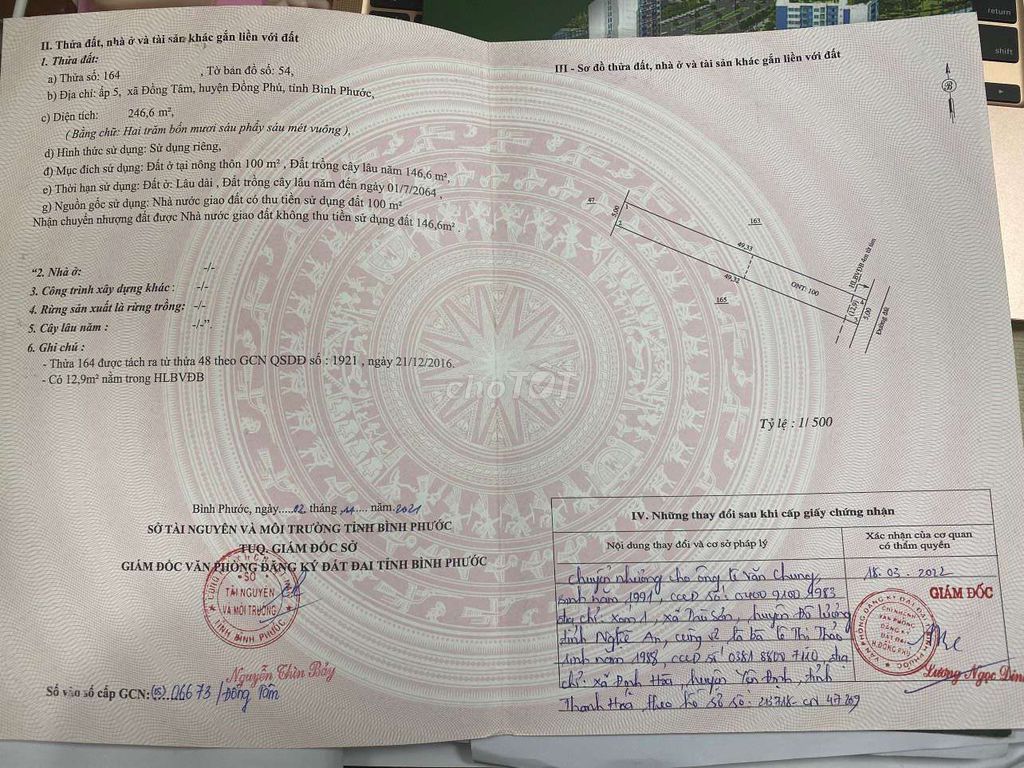 II. Thửa đất, nhà ở và tài sản khác gắn liền với đất
1. Thửa đất:
a) Thửa số: 164 , Tờ bản đồ số: 54,
b) Địa chỉ: ấp 5, xã Đồng Tâm, huyện Đồng Phú, tỉnh Bình Phước,
c) Diện tích: 246,6 m²,
( Bằng chữ: Hai trăm bốn mươi sáu phẩy sáu mét vuông ),
d) Hình thức sử dụng: Sử dụng riêng,
đ) Mục đích sử dụng: Đất ở tại nông thôn 100 m² , Đất trồng cây lâu năm 146,6 m²,
e) Thời hạn sử dụng: Đất ở: Lâu dài , Đất trồng cây lâu năm đến ngày 01/7/2064 ,
g) Nguồn gốc sử dụng: Nhà nước giao đất có thu tiền sử dụng đất 100 m²
Nhận chuyển nhượng đất được Nhà nước giao đất không thu tiền sử dụng đất 146,6m² .
“2. Nhà ở: -/-
3. Công trình xây dựng khác : -/-
4. Rừng sản xuất là rừng trồng: -/-
5. Cây lâu năm : -/-”.
6. Ghi chú :
- Thửa 164 được tách ra từ thửa 48 theo GCN QSDĐ số : 1921 , ngày 21/12/2016.
- Có 12,9m² nằm trong HLBVĐB
Bình Phước, ngày.....02 tháng 11.... năm.2021
SỞ TÀI NGUYÊN VÀ MÔI TRƯỜNG TỈNH BÌNH PHƯỚC
TUQ. GIÁM ĐỐC SỞ
GIÁM ĐỐC VĂN PHÒNG ĐĂNG KÝ ĐẤT ĐAI TỈNH BÌNH PHƯỚC
SỞ
TÀI NGUYÊN
VÀ MÔI TRƯỜNG
TỈNH BÌNH PHƯỚC
Nguyễn Thìn Bảy
Số vào sổ cấp GCN: 06673 /Đồng Tâm
III - Sơ đồ thửa đất, nhà ở và tài sản khác gắn liền với đất
B
47
5.00
1
2
163
49,33
49,32
165
ONT: 100
HLBVĐB 4m từ tim
(12,9)
5.00
Đường đất
Tỷ lệ : 1/ 500
choTỐT
IV. Những thay đổi sau khi cấp giấy chứng nhận
Nội dung thay đổi và cơ sở pháp lý
Xác nhận của cơ quan
có thẩm quyền
Chuyển nhượng cho ông Lê Văn Chung,
sinh năm 1991, CCCD số: 04009100 4983
địa chỉ: xóm 1, xã Trù Sơn, huyện Đô Lương
tỉnh Nghệ An, cùng vợ là bà Lê Thị Thảo
sinh năm 1988, CCCD số 0381 8800 7110, địa
chỉ: xã Định Hòa, huyện Yên Định, tỉnh
Thanh Hoá theo hồ sơ số:
18.03.2022
GIÁM ĐỐC
CHI NHÁNH
VĂN PHÒNG
ĐĂNG KÝ
ĐẤT ĐAI
H.ĐỒNG PHÚ
Lương Ngọc
return
shift